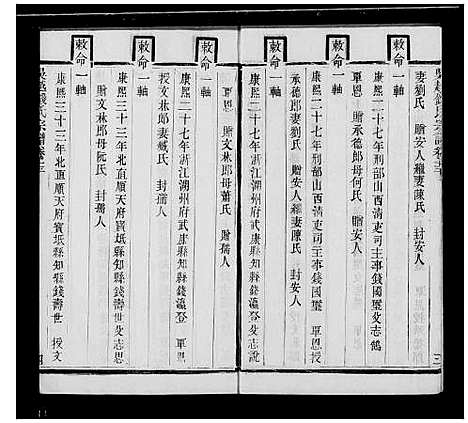 妻劉氏　贈安人繼妻陳氏　封安人
敕命一軸
康熙二十七年刑部山西清吏司主事錢國璽父志鶴
覃恩　贈承德郎母何氏　贈安人
敕命一軸
康熙二十七年刑部山西清吏司主事錢國璽　覃恩授
承德郎妻劉氏　贈安人繼妻陳氏　封安人
敕命一軸
康熙二十七年浙江湖州府武康縣知縣錢瀛登父志說
覃恩　贈文林郎母蕭氏　贈孺人
敕命一軸
康熙二十七年浙江湖州府武康縣知縣錢瀛登　覃恩
授文林郎妻臧氏　封孺人
敕命一軸
康熙三十三年北直順天府寶坻縣知縣錢壽世父志恩
贈文林郎母阮氏　封孺人
敕命一軸
康熙三十三年北直順天府寶坻縣知縣錢壽世　授文
吳越錢氏宗譜卷之